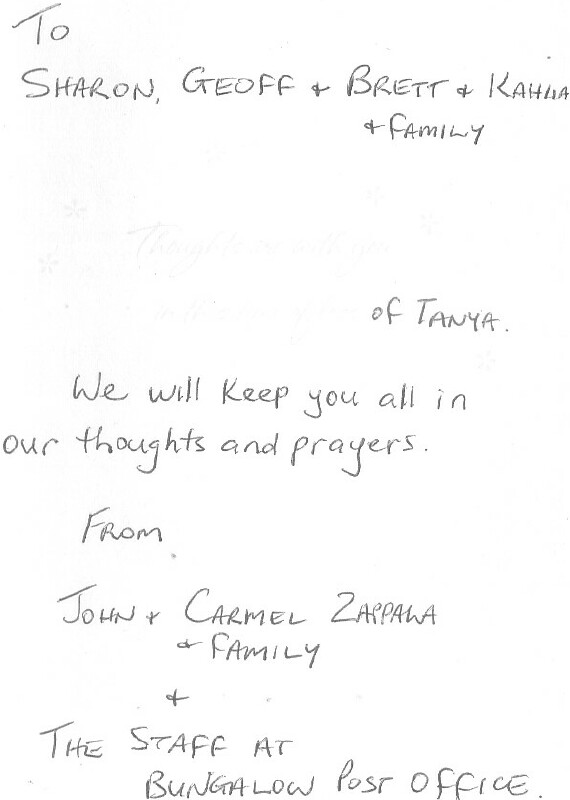 To
SHARON, GEOFF & BRETT & KAHLIA
& FAMILY
Thoughts are with you
of TANYA.
We will keep you all in
our thoughts and prayers.
FROM
JOHN & CARMEL ZAPPALA
& FAMILY
&
THE STAFF AT
BUNGALOW POST OFFICE.